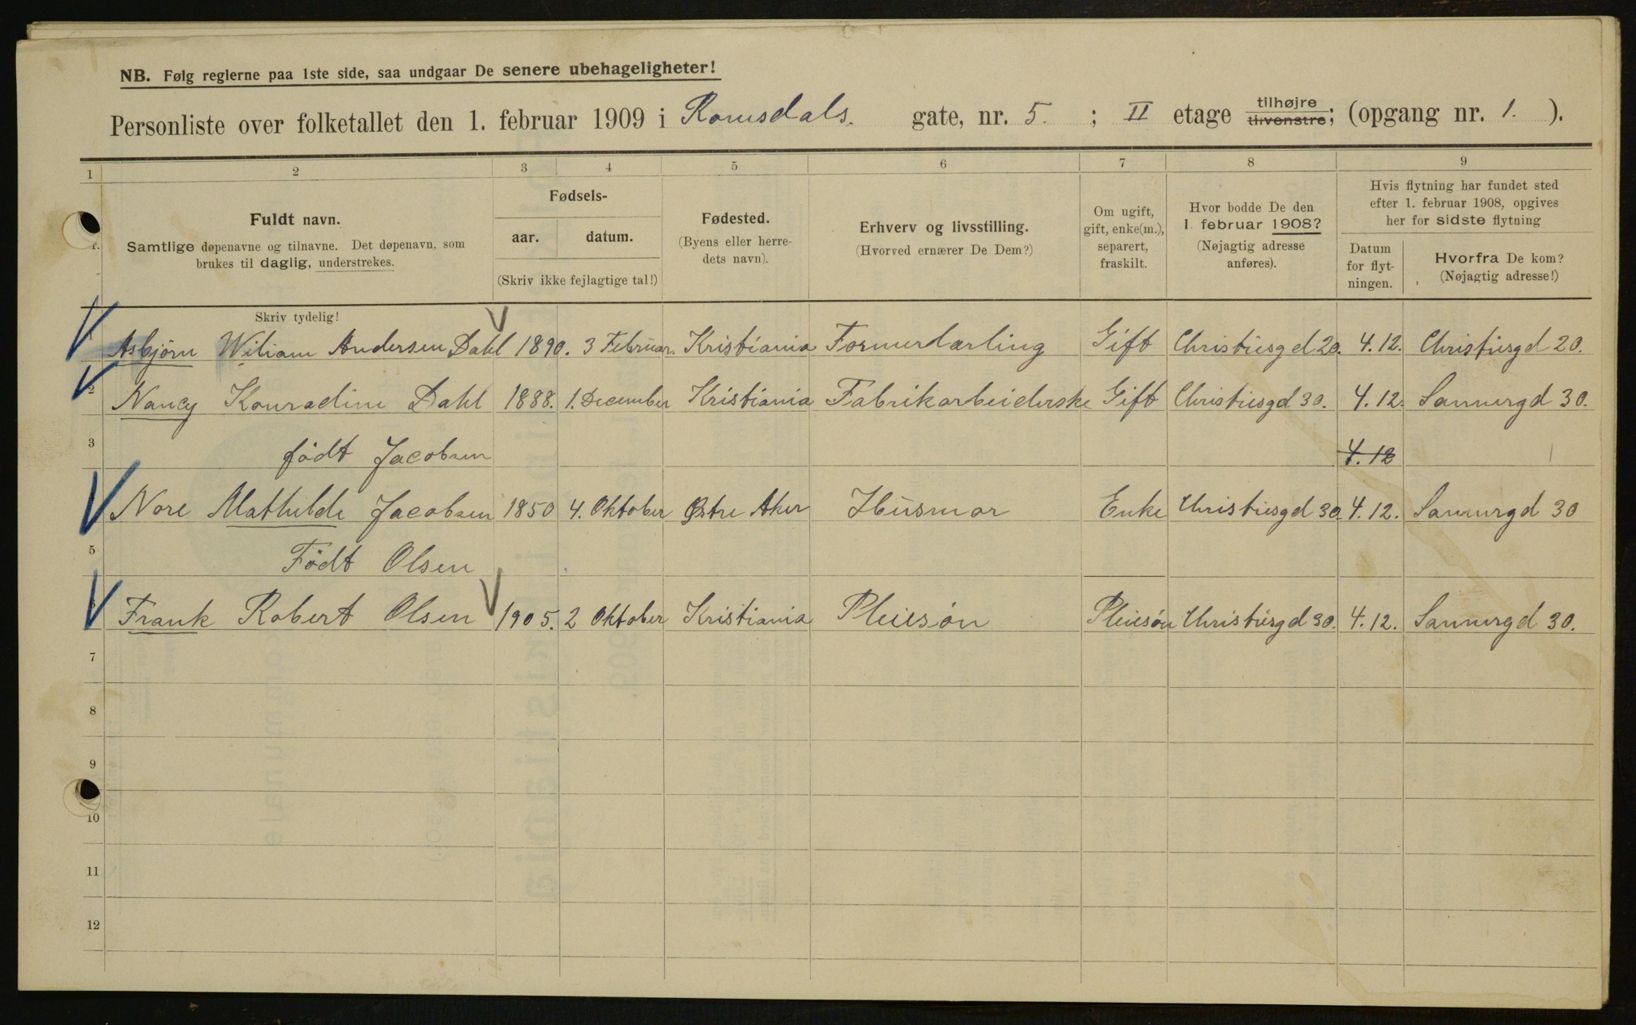 NB. Følg reglerne paa 1ste side, saa undgaar De senere ubehageligheter!
Personliste over folketallet den 1. februar 1909 i Romsdals. gate, nr. 5. ; II etage tilhøjre tilvenstre; (opgang nr. 1. ).
1 2 3 4 5 6 7 8 9
Fuldt navn.
Samtlige døpenavne og tilnavne. Det døpenavn, som
brukes til daglig, understrekes.
Fødsels-
aar. datum.
(Skriv ikke fejlagtige tal!)
Fødested.
(Byens eller herre-
dets navn).
Erhverv og livsstilling.
(Hvorved ernærer De Dem?)
Om ugift,
gift, enke(m.),
separert,
fraskilt.
Hvor bodde De den
1. februar 1908?
(Nøjagtig adresse
anføres).
Hvis flytning har fundet sted
efter 1. februar 1908, opgives
her for sidste flytning
Datum
for flyt-
ningen.
Hvorfra De kom?
(Nøjagtig adresse!)
Skriv tydelig!
Asbjørn Wiliam Andersen Dahl 1890. 3 Februar. Kristiania Formerlærling Gift Christiesgd 20. 4.12. Christiesgd 20.
2 Nancy Konradine Dahl 1888. 1. December Kristiania Fabrikarbeiderske Gift Christiesgd 30. 4.12. Sannergd 30.
3 født Jacobsen 4.12
Nore Mathilde Jacobsen 1850 4. Oktober Østre Aker Husmor Enke Christiesgd 30. 4.12. Sannergd 30
5 Født Olsen
Frank Robert Olsen 1905. 2 Oktober Kristiania Pleiesøn Pleiesøn Christiesgd 30. 4.12. Sannergd 30.
7
8
9
10
11
12